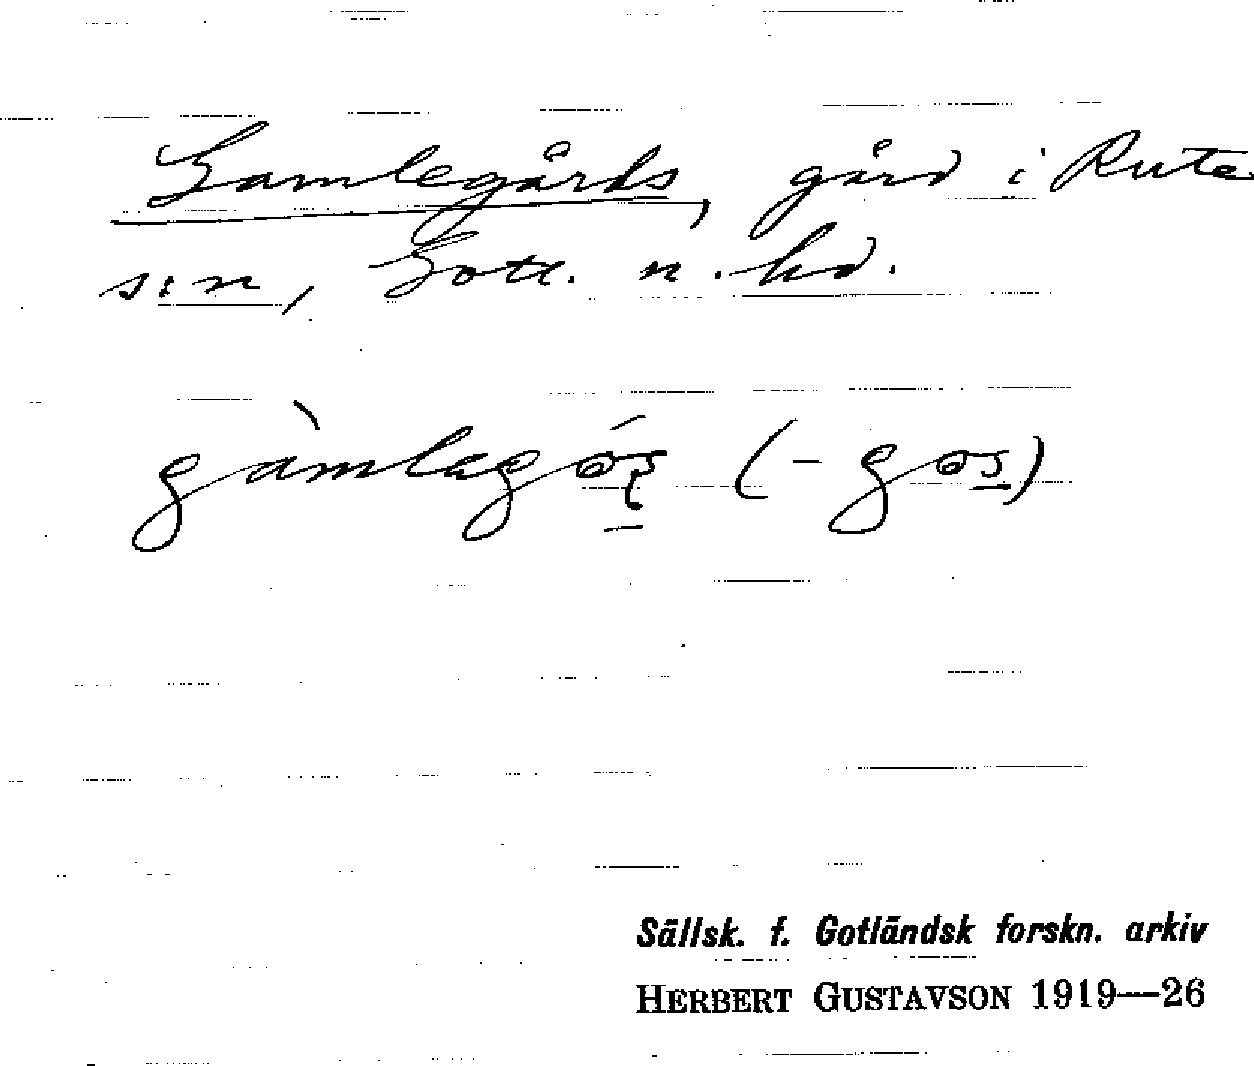 Gamlegårds, gård i Rute
sn, Gotl. n. hd.
gàmlagós (-gos)
Sällsk. f. Gotländsk forskn. arkiv
HERBERT GUSTAVSON 1919—26